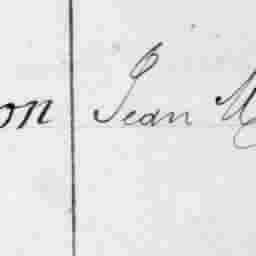 on Jean M